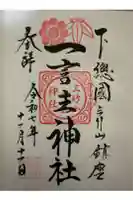 下總國三竹山鎮座
一言主神社
奉拝
令和七年
十一月十二日